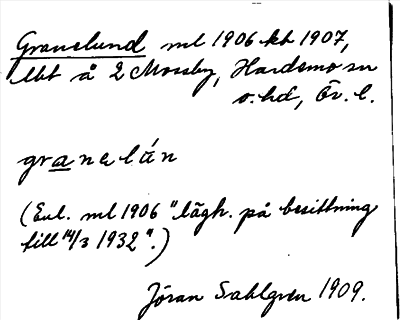 Granelund ml 1906 kb 1907,
lht å 2 Mossby, Hardemo sn
o. hd, Ör. l.
granelún
(Enl. ml 1906 "lägh. på besittning
till 14/3 1932".)
Jöran Sahlgren 1909.